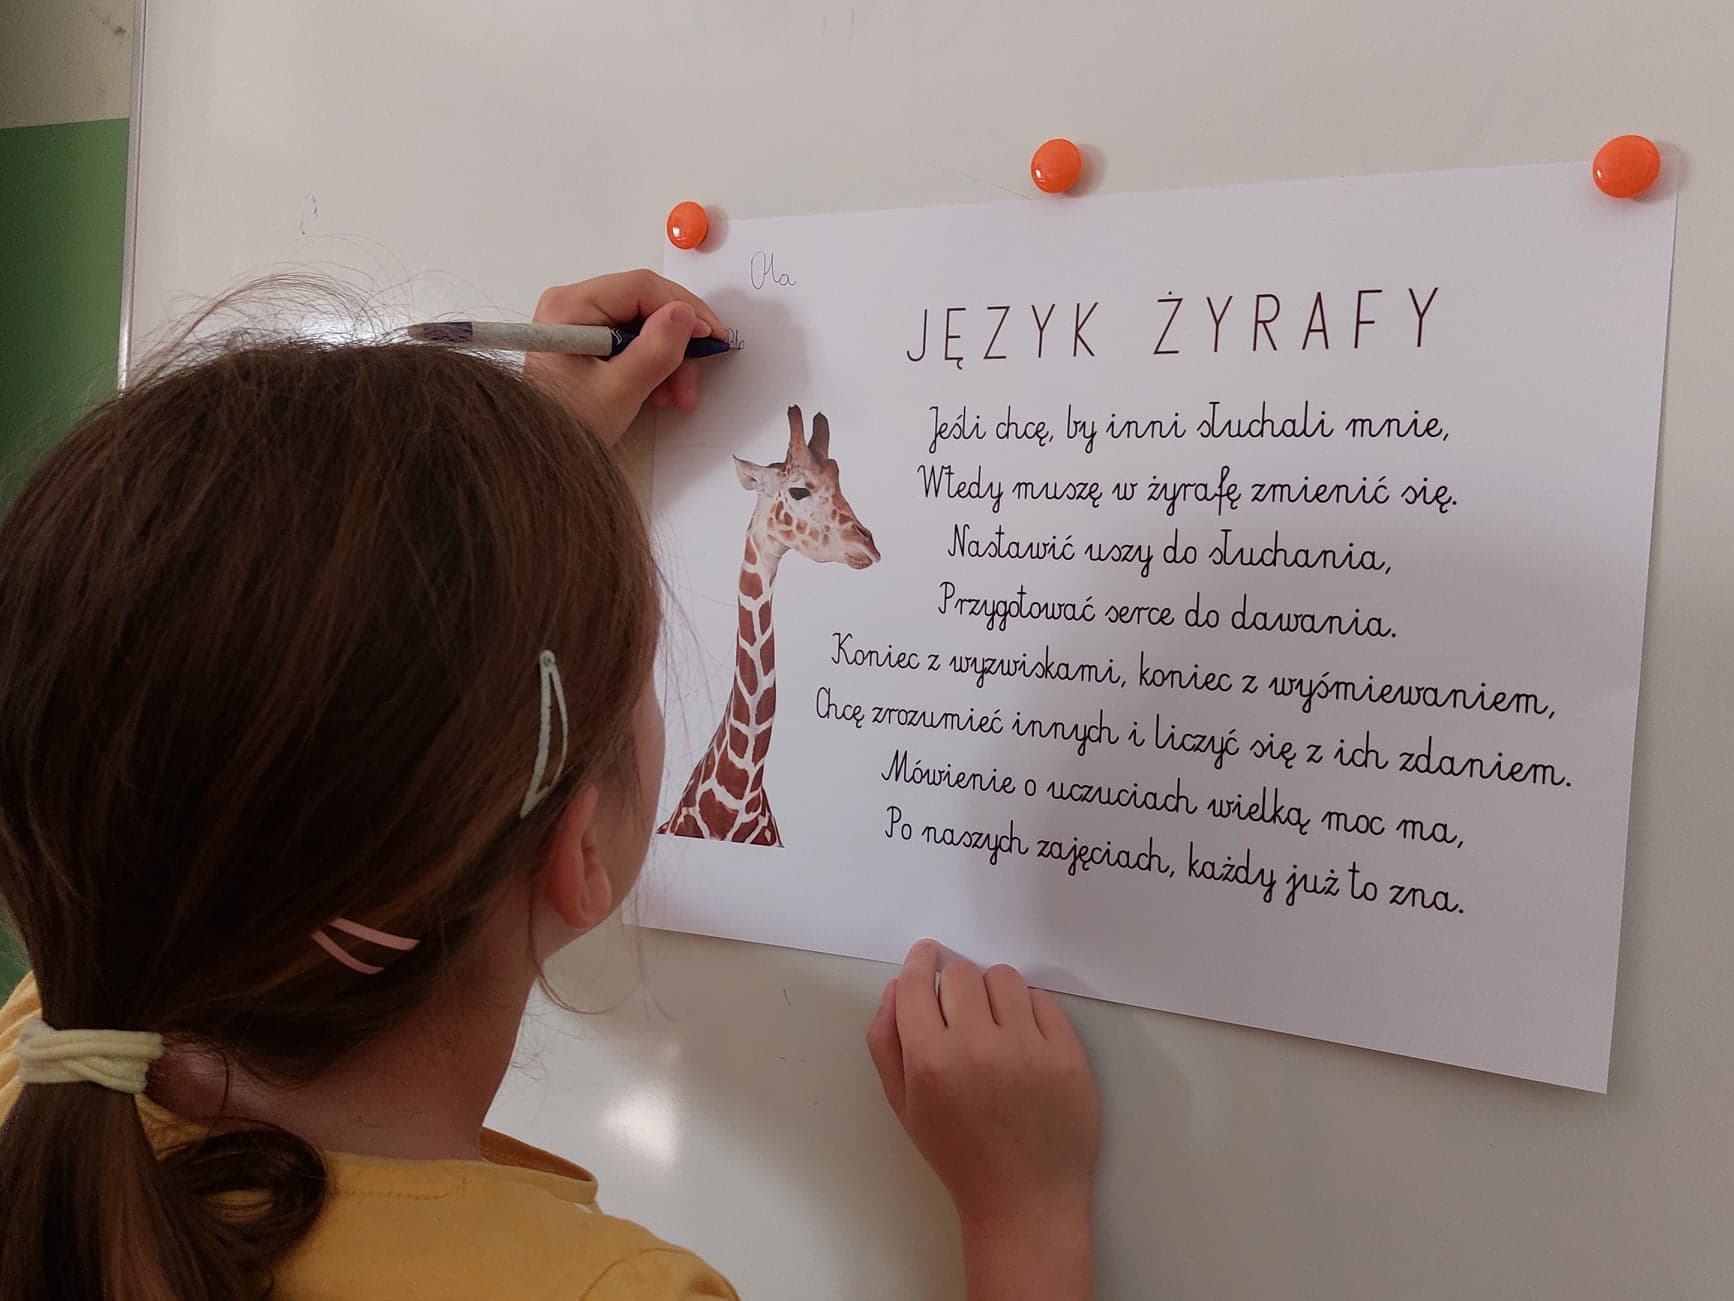 Ola
JĘZYK ŻYRAFY
Jeśli chcę, by inni słuchali mnie,
Wtedy muszę w żyrafę zmienić się.
Nastawić uszy do słuchania,
Przygotować serce do dawania.
Koniec z wyzwiskami, koniec z wyśmiewaniem,
Chcę zrozumieć innych i liczyć się z ich zdaniem.
Mówienie o uczuciach wielką moc ma,
Po naszych zajęciach, każdy już to zna.